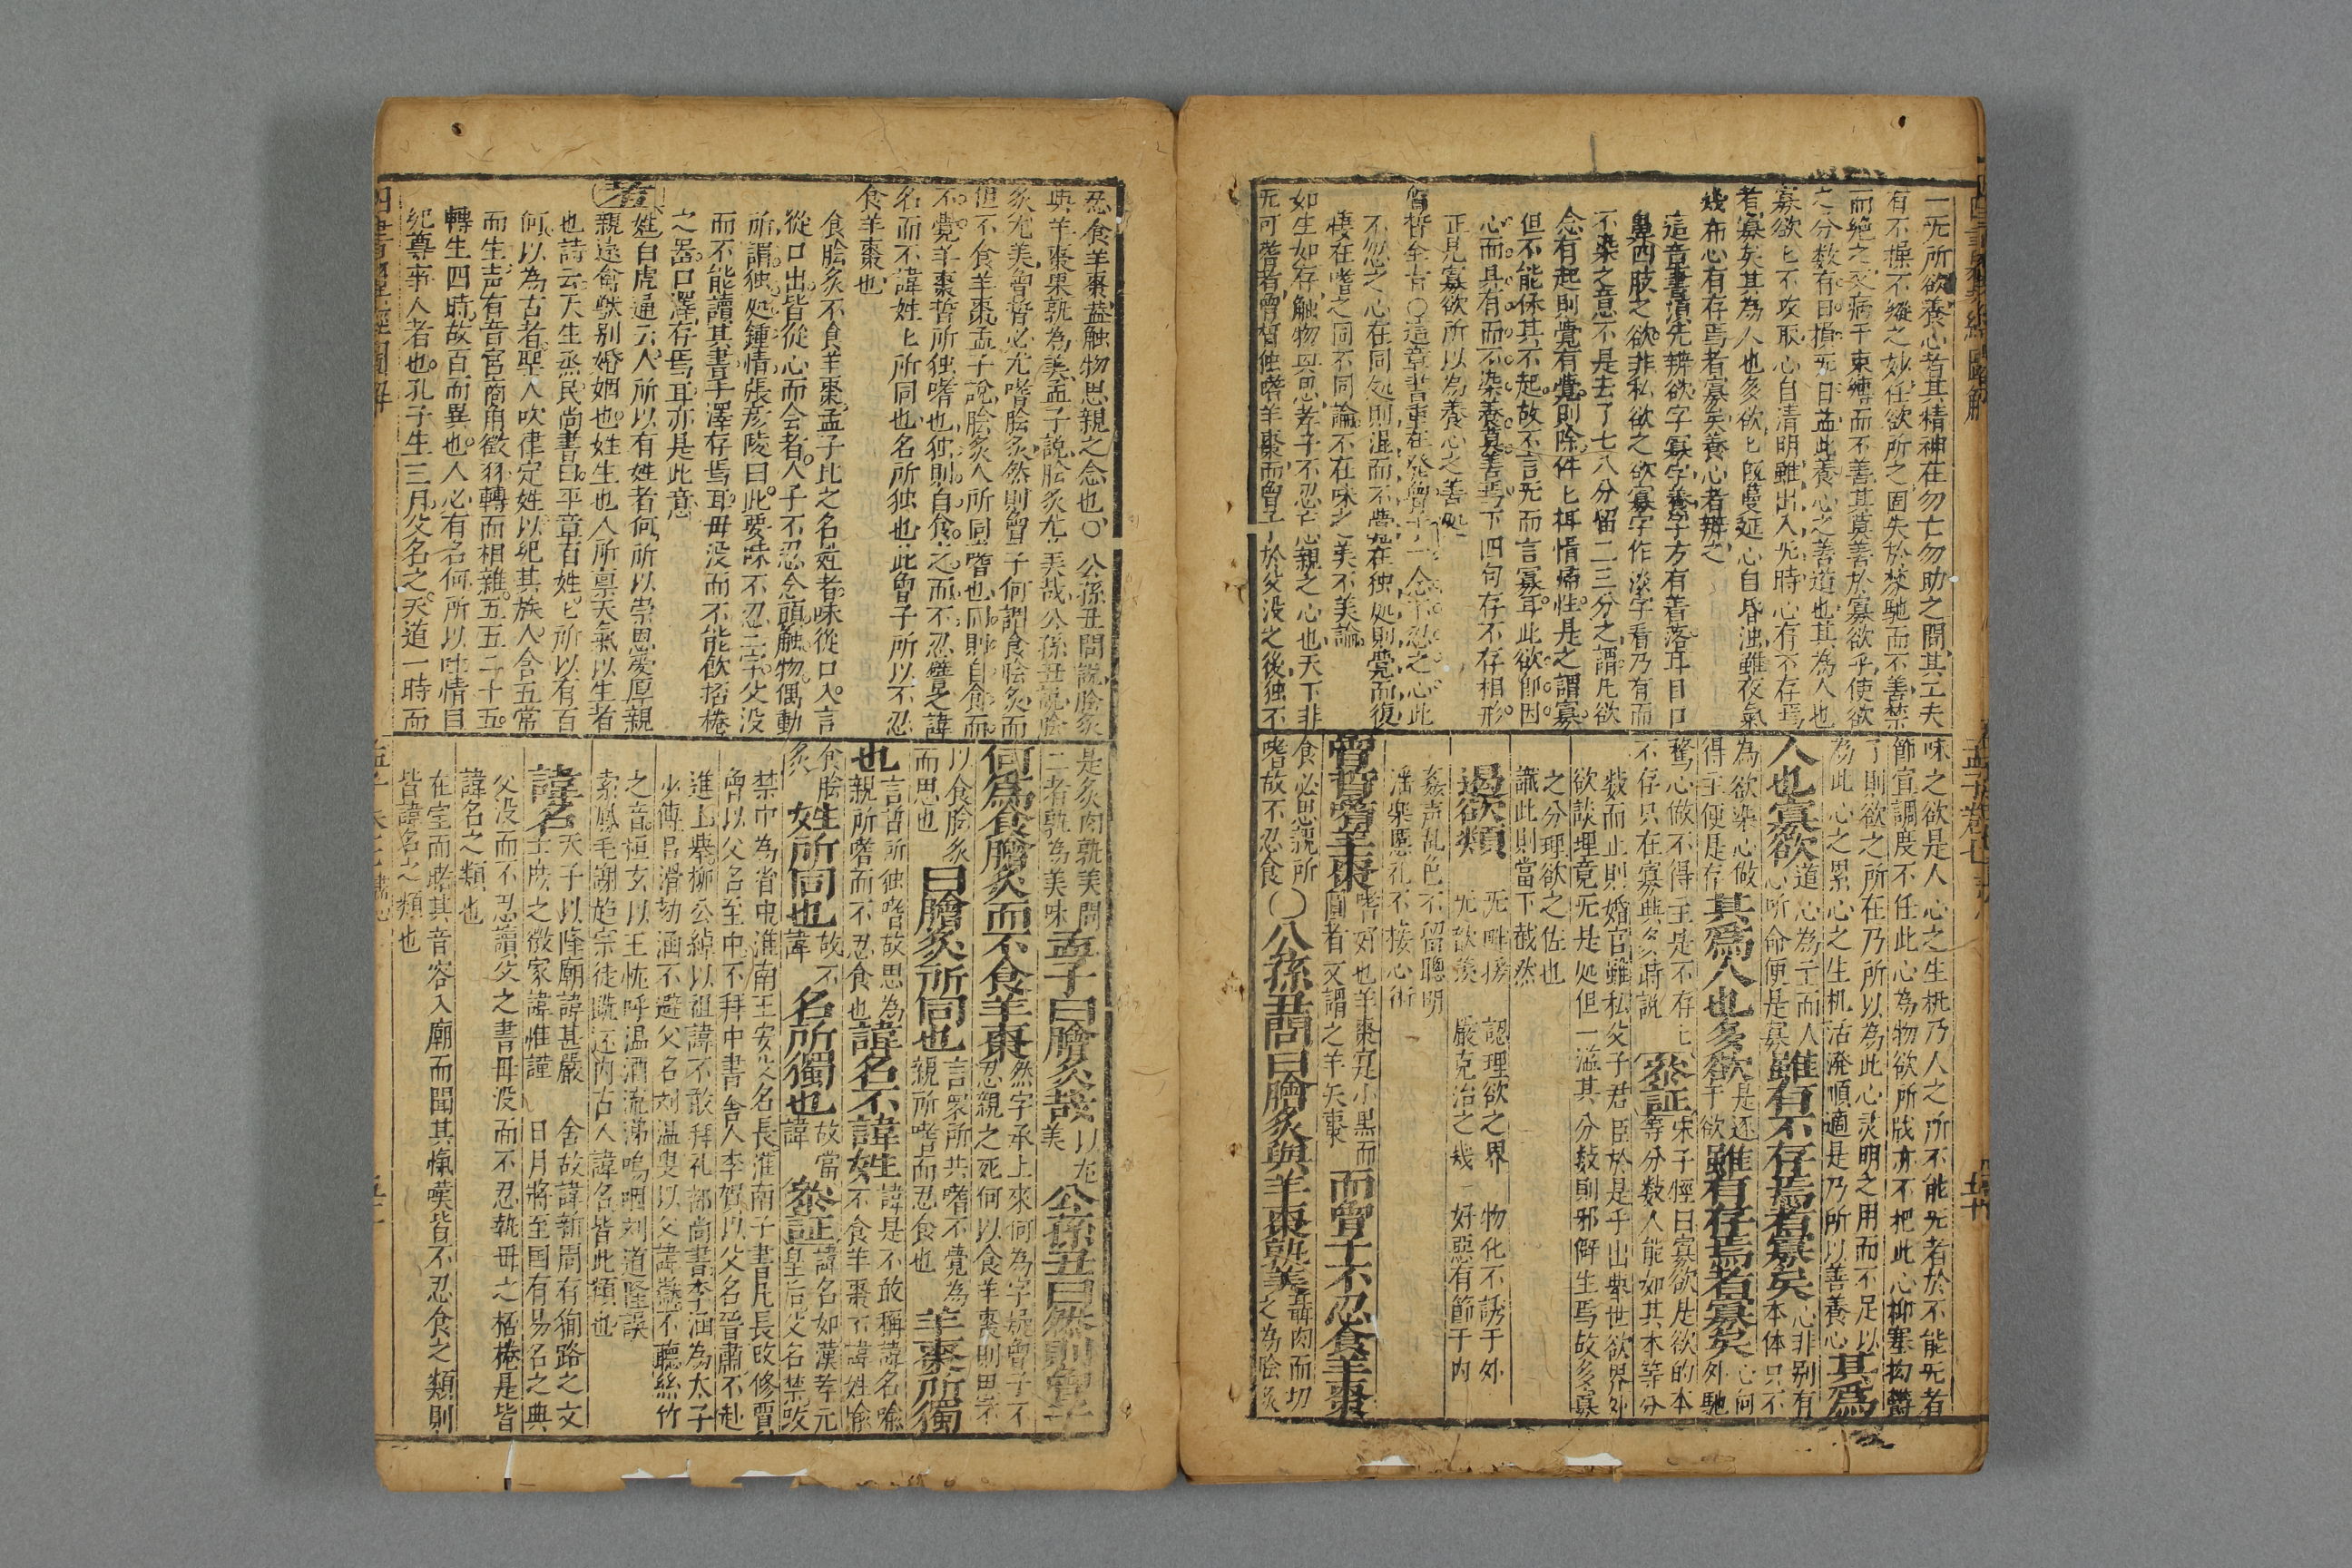 一无所欲養心者其精神在勿亡勿助之間其工夫
有不操不縱之妙任欲所之固失於梏馳而不善禁
而絶之又病于束縛而不善其莫善於寡欲乎使欲
之分数有日損无日益此養心之善道也其為人也
寡欲匕不攻取心自清明雖出入无時心有不存焉
者寡矣其為人也多欲匕既蔓延心自昏浊雖夜氣
幾希心有存焉者寡矣養心者辨之
這章書湏先辨欲字寡字養字方有着落耳目口
鼻四肢之欲非私欲之欲寡字作淡字看乃有而
不染之意不是去了七八分留二三分之謂凢欲
念有起則覺有覺則除件匕摂情帰性是之謂寡
但不能保其不起故不言无而言寡耳此欲即因
心而具有而不染養莫善焉下四句存不存相形
正見寡欲所以為養心之善処
曾晳全旨〇這章書重在発曾子一念不忍之心此
不忍之心在同処則混而不覺在独処則覺而復
悽在嗜之同不同論不在味之美不美論
如生如存触物興思孝子不忍忘親之心也天下非
无可嗜者曾晳独嗜羊棗而曾子於父没之後独不
味之欲是人心之生机乃人之所不能无者於不能无者
節宜調度不任此心為物欲所戕亦不把此心抑塞拘鬱
了則欲之所在乃所以為此心灵明之用而不足以
為此心之累心之生机活潑順適是乃所以善養心其爲
人也寡欲道心為主而人心听命便是寡雖有不存焉者寡矣心非别有本体只不
為欲染心做得主便是存其爲人也多欲是还于欲雖有存焉者寡矣心何外馳
騖心做不得主是不存匕不存只在寡與多時説 叅証 宋子悭曰寡欲是欲的本等分数人能如其本等分
数而止則婚官雖私父子君臣於是乎出與世欲界外
欲談理竟无是処但一溢其分数則邪僻生焉故多寡
之分理欲之佐也
識此則當下截然
遏欲類 无畔援 認理欲之界 物化不誘于外
无歆羨 嚴克治之幾 好惡有節于内
姦声乱色不留聰明
滛樂慝礼不接心術
曾晳嗜羊棗嗜好也羊棗寔小黒而圓者又謂之羊矢棗而曾子不忍食羊棗
食必思親所嗜故不忍食〇公孫丑問曰膾炙與羊棗孰美聶肉而切之為膾炙
忍食羊棗盖触物思親之念也〇公孫丑問説膾炙
與羊棗果孰為美孟子説膾炙尤美哉公孫丑説膾
炙尤美曾晳必尤嗜膾炙然則曾子何謂食膾炙而
但不食羊棗孟子説膾炙人所同嗜也同則自食而
不覺羊棗晳所独嗜也独則自食之而不忍譬之諱
名而不諱姓匕所同也名所独也此曾子所以不忍
食羊棗也
食膾炙不食羊棗孟子比之名姓者味從口入言
從口出皆從心而会者人子不忍念頭触物偶動
所謂独処鍾情張彦陵曰此要味不忍二字父没
而不能讀其書手澤存焉耳毋没而不能飲梠棬
之器口澤存焉耳亦是此意
姓白虎通云人所以有姓者何所以崇恩愛厚親
親遠禽獸别婚姻也姓生也人所禀天氣以生者
也詩云天生烝民尚書曰平章百姓匕所以有百
何以為古者聖人吹律定姓以紀其族人含五常
而生声有音宫商角徵羽轉而相雜五五二十五
轉生四時故百而異也人必有名何所以吐情自
紀尊事人者也孔子生三月父名之天道一時而
是炙肉孰美問二者孰為美味孟子曰膾炙哉以尤美公孫丑曰然則曾子
何爲食膾炙而不食羊棗然字承上來何為字疑曾子不忍親之死何以食羊棗則思不
以食膾炙而思也曰膾炙所同也言衆所共嗜不覺為親所嗜而忍食也羊棗所獨
也言晳所独嗜故思為親所嗜而不忍食也諱名不諱姓諱是不敢稱諱名喻不食羊棗不諱姓喻
食膾炙姓所同也故不諱名所獨也故當諱 叅証 諱名如漢孝元皇后父名禁改
禁中為省中淮南王安父名長淮南子書凡長改修賈
曾以父名至中不拜中書舎人李賀以父名晉肅不赴
進上舉柳公綽以祖諱不敢拜礼部尚書李涵為太子
少傅吕渭劾涵不避父名刘温叟以父諱樂不聽絲竹
之音恒玄以王忱呼温酒流涕嗚咽刘道隆誤
索鳳毛謝超宗徒跣还内古人諱名皆此類也
諱名 天子以隆廟諱甚嚴 舍故諱新周有狥路之文
士庶之微家諱惟謹 日月將至国有易名之典
父没而不忍讀父之書毋没而不忍執毋之梠棬是皆
諱名之類也
在室而睹其音容入廟而聞其愾嘆皆不忍食之類則
皆諱名之類也